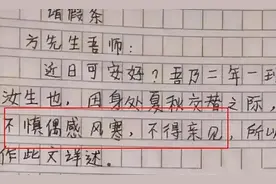 请假条
方先生吾师:
近日可安好?吾乃二年一班
汝生也,因身处夏秋交替之际,
不慎偶感风寒,不得亲见,所以
作此文详述。